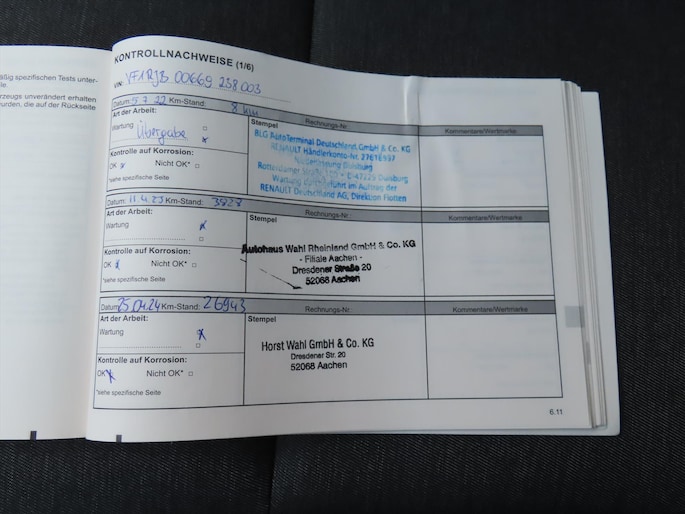 äßig spezifischen Tests unter-
rzeugs unverändert erhalten
vurden, die auf der Rückseite
KONTROLLNACHWEISE (1/6)
VIN: VF1RJB 00669 238 003
Datum: 5.7.22 Km-Stand: 8 km Rechnungs-Nr.: Kommentare/Wertmarke
Art der Arbeit:
Wartung
Übergabe
Kontrolle auf Korrosion:
OK Nicht OK*
*siehe spezifische Seite
Stempel
BLG AutoTerminal Deutschland GmbH & Co. KG
RENAULT Händlerkonto-Nr. 27616937
Niederlassung Duisburg
D-47229 Duisburg
Wartung durchgeführt im Auftrag der
RENAULT Deutschland AG, Direktion Flotten
Datum: 11.4.23 Km-Stand: 3828 Rechnungs-Nr.: Kommentare/Wertmarke
Art der Arbeit:
Wartung
Kontrolle auf Korrosion:
OK Nicht OK*
*siehe spezifische Seite
Stempel
Autohaus Wahl Rheinland GmbH & Co. KG
- Filiale Aachen -
Dresdener Straße 20
52068 Aachen
Datum: 25.04.24 Km-Stand: 26943 Rechnungs-Nr.: Kommentare/Wertmarke
Art der Arbeit:
Wartung
Kontrolle auf Korrosion:
OK Nicht OK*
*siehe spezifische Seite
Stempel
Horst Wahl GmbH & Co. KG
Dresdener Str. 20
52068 Aachen
6.11